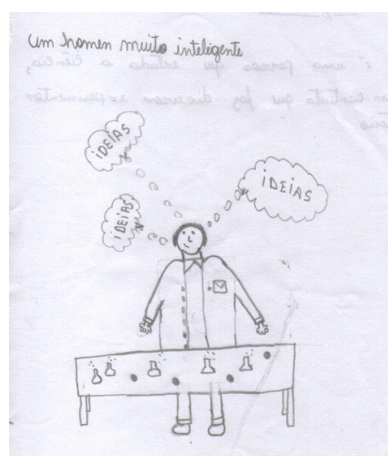 um homen muito inteligente
IDEIAS
IDEIAS
IDEIAS